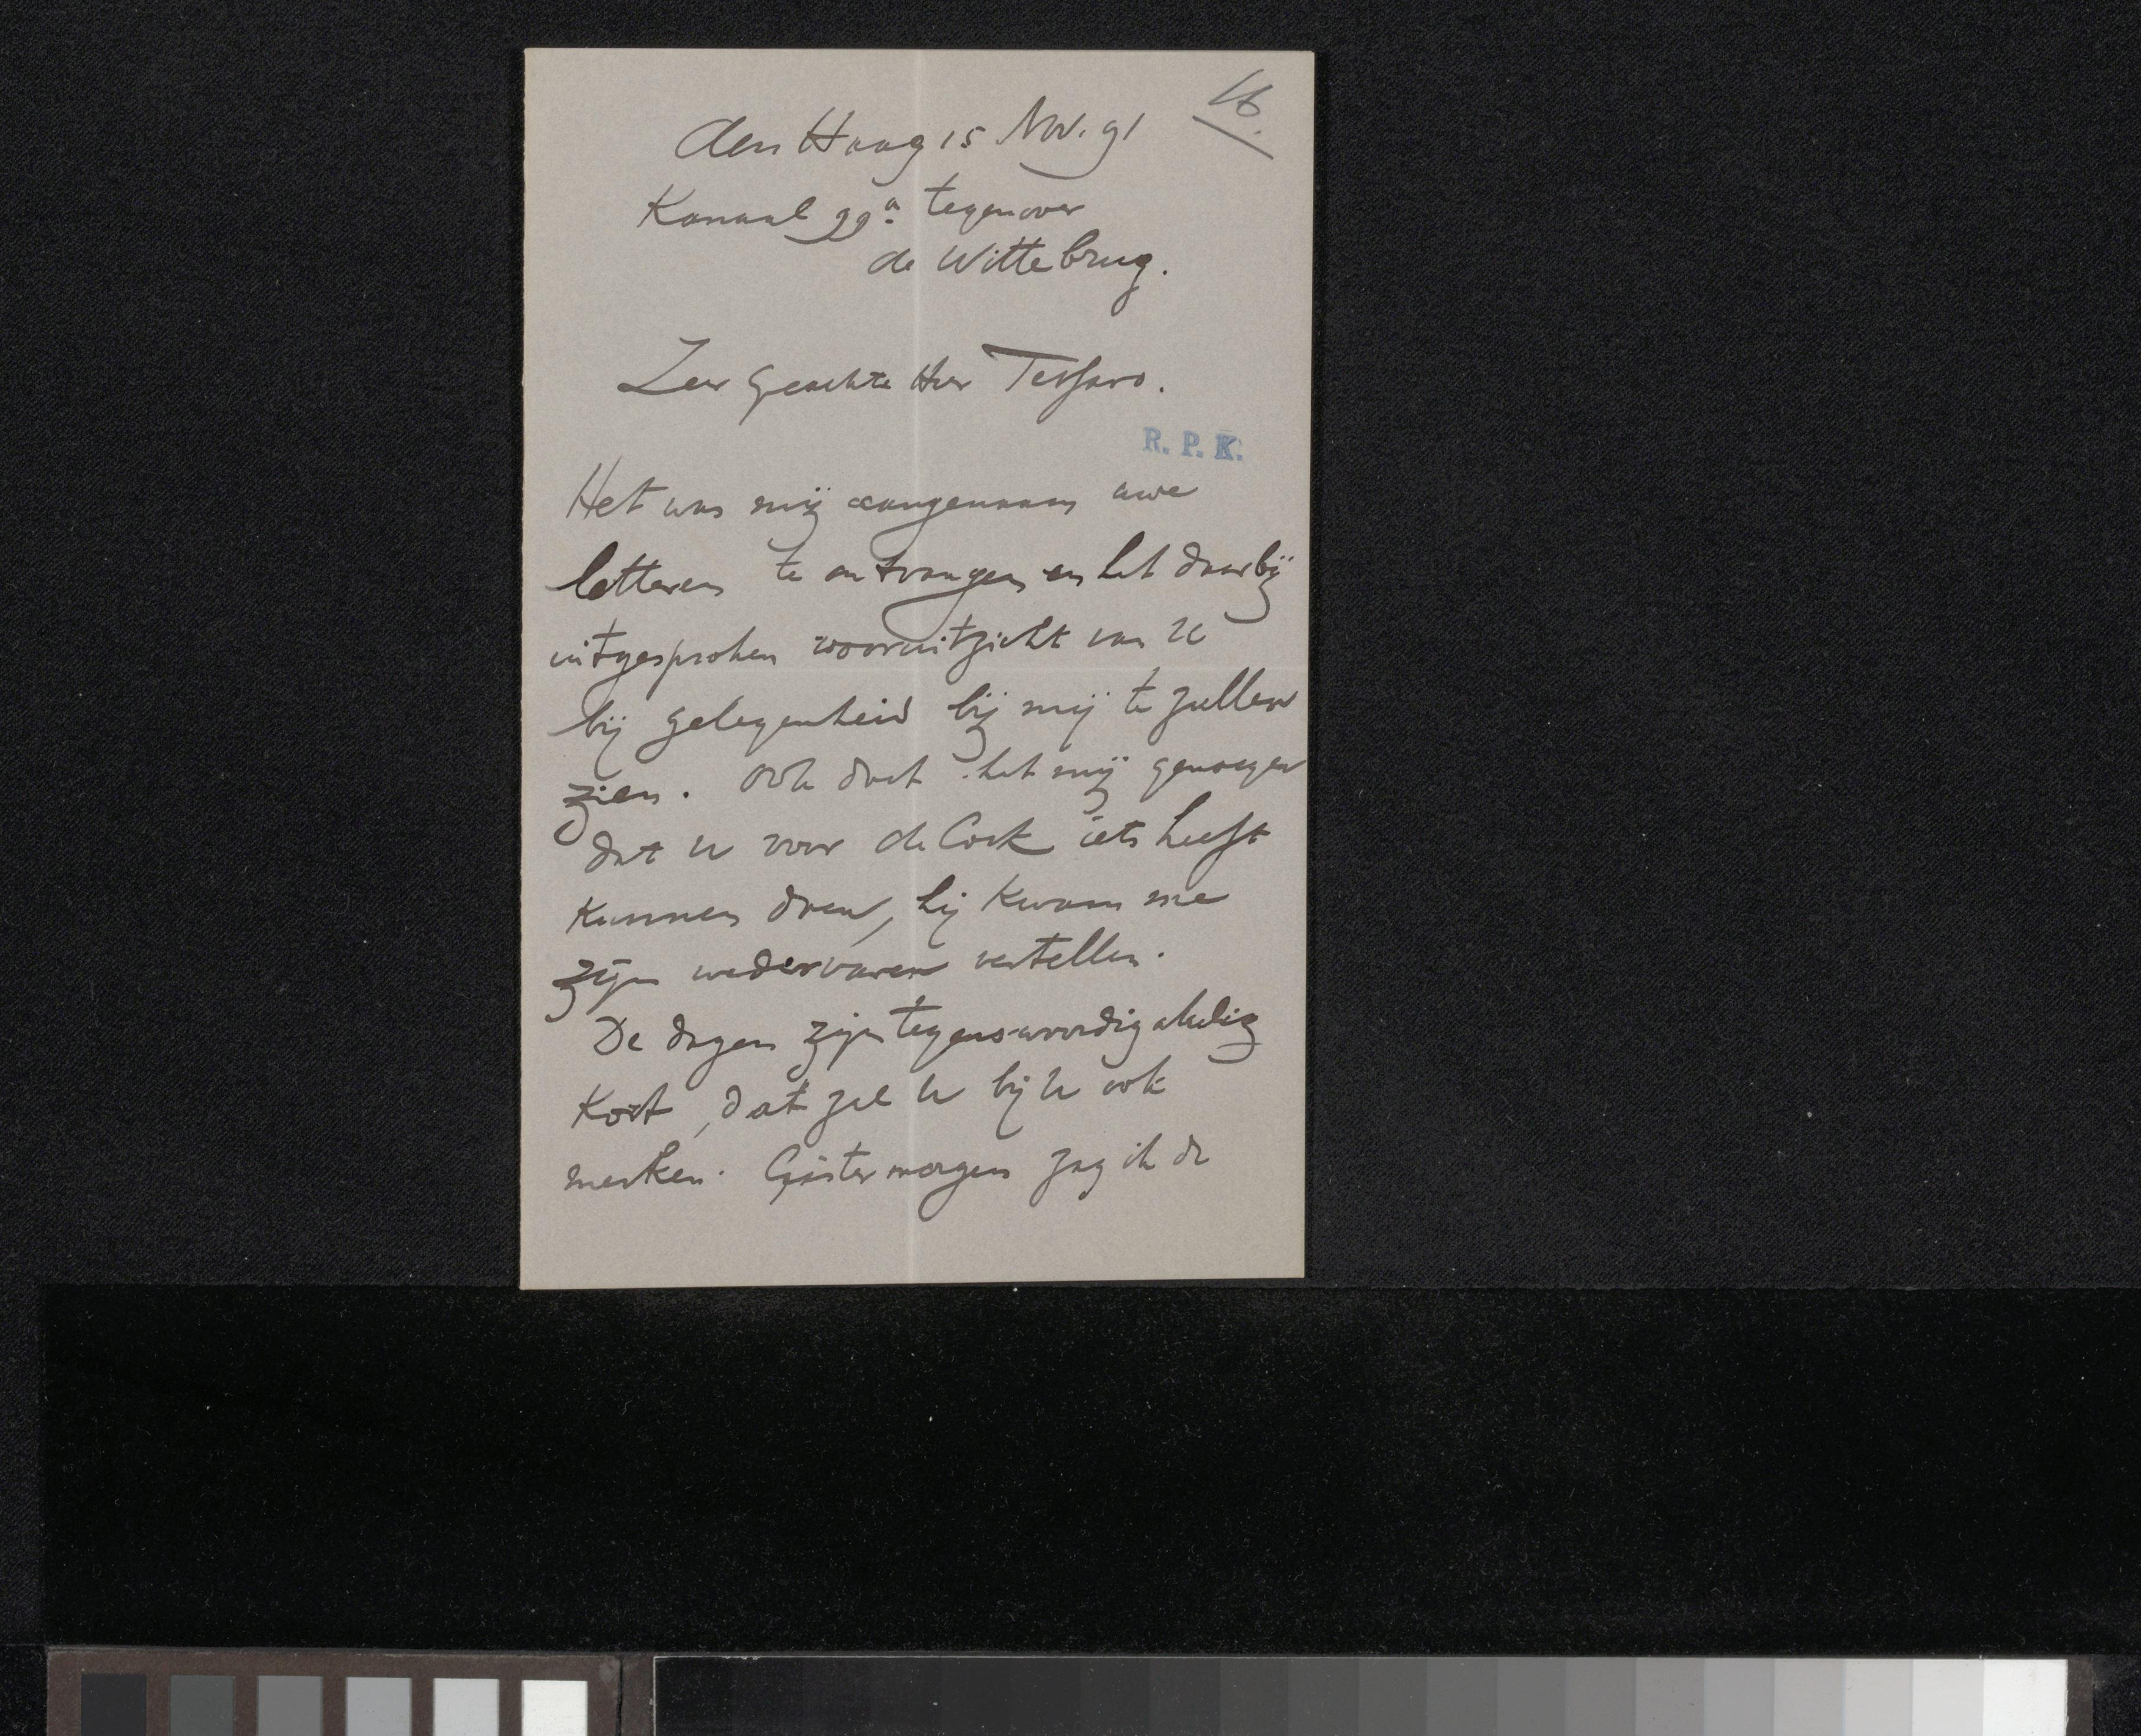 16.
den Haag 15 Nov. 91
Kanaal 99a tegenover
de Wittebrug.
Zeer geachte Heer Tessaro.
R. P. K.
Het was mij aangenaam uwe
letteren te ontvangen en het daarbij
uitgesproken vooruitzicht van U
bij gelegenheid bij mij te zullen
zien. Ook doet het mij genoegen
dat U voor de Cock iets heeft
kunnen doen, hij kwam me
zijn wedervaren vertellen.
De dagen zijn tegenswoordig akelig
kort, dat zal U bij U ook
merken. Gistermorgen zag ik de